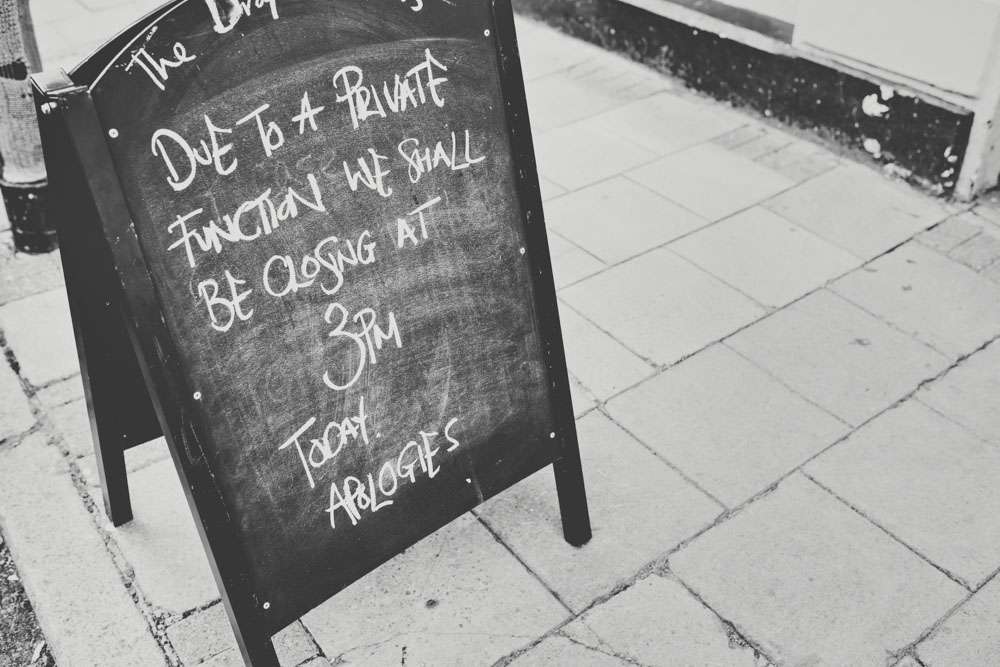 The
DUE TO A PRIVATE
FUNCTION WE SHALL
BE CLOSING AT
3PM
TODAY.
APOLOGIES